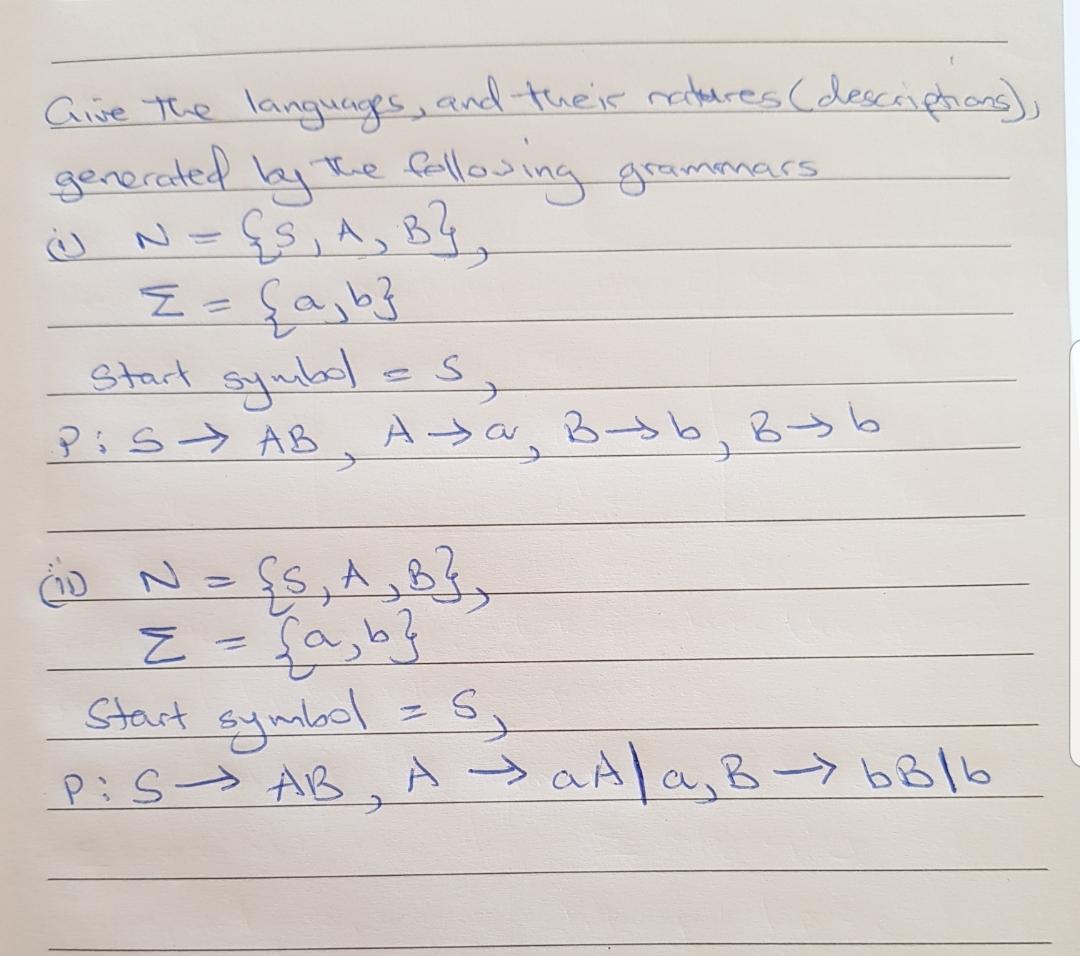 Give the languages, and their natures (descriptions),
generated by the following grammars
(i) N = {S, A, B},
Σ = {a, b}
Start symbol = S,
P: S → AB, A → a, B → b, B → b
(ii) N = {S, A, B},
Σ = {a, b}
Start symbol = S,
P: S → AB, A → aA | a, B → bB | b